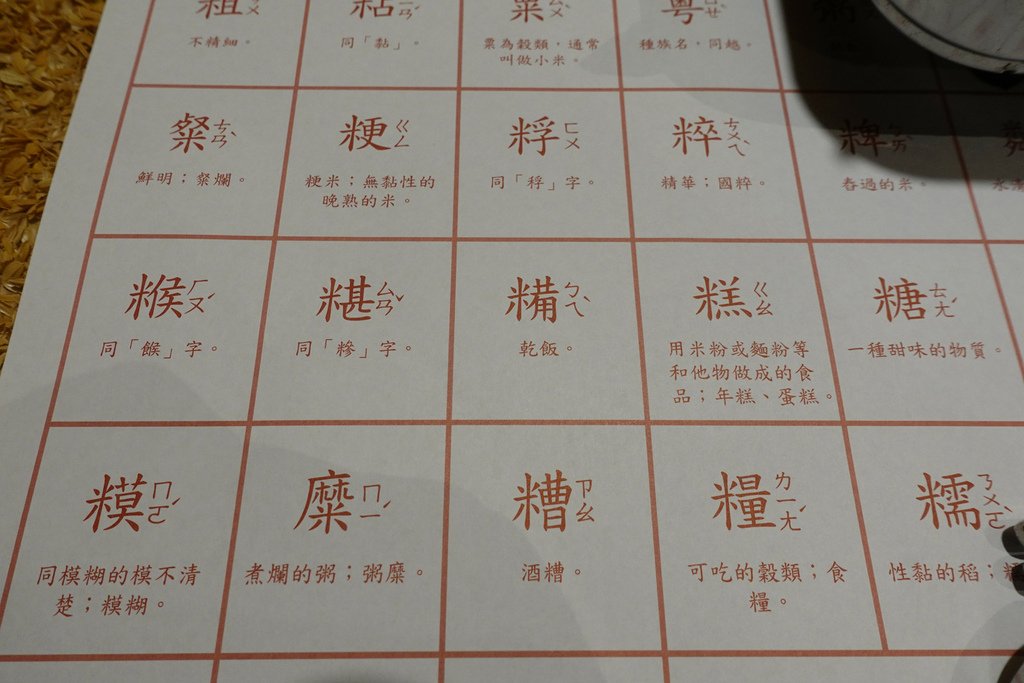 粗 ㄘㄨ
不精細。
粘 ㄋㄧㄢˊ
同「黏」。
粟 ㄙㄨˋ
粟為穀類，通常
叫做小米。
粵 ㄩㄝˋ
種族名，同越。
粥
粲 ㄘㄢˋ
鮮明；粲爛。
粳 ㄍㄥ
粳米；無黏性的
晚熟的米。
粰 ㄈㄨ
同「稃」字。
粹 ㄘㄨㄟˋ
精華；國粹。
粺 ㄅㄞˋ
舂過的米。
糇 ㄏㄡˊ
同「餱」字。
糂 ㄙㄢˇ
同「糝」字。
糒 ㄅㄟˋ
乾飯。
糕 ㄍㄠ
用米粉或麵粉等
和他物做成的食
品；年糕、蛋糕。
糖 ㄊㄤˊ
一種甜味的物質。
糢 ㄇㄛˊ
同模糊的模不清
楚；糢糊。
糜 ㄇㄧˊ
煮爛的粥；粥糜。
糟 ㄗㄠ
酒糟。
糧 ㄌㄧㄤˊ
可吃的穀類；食
糧。
糯 ㄋㄨㄛˋ
性黏的稻；糯